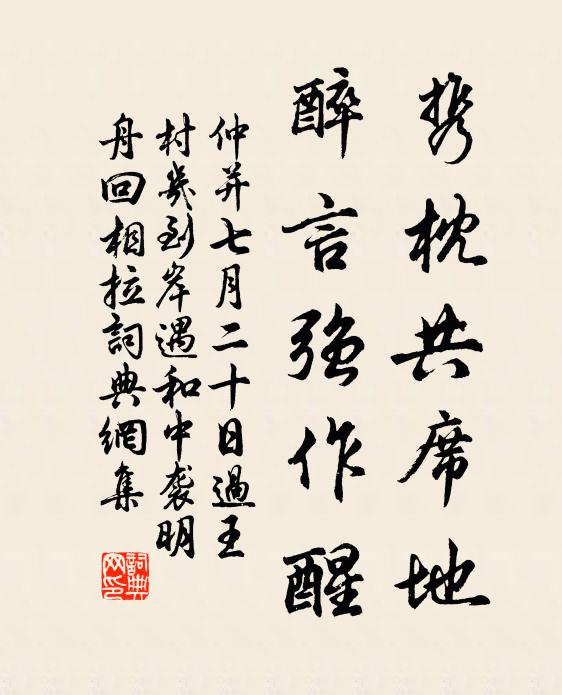 携枕共席地
醉言強作醒
仲并七月二十日過王
村幾到岸遇和中袭明
舟回相拉詞典網集
詞典
网印